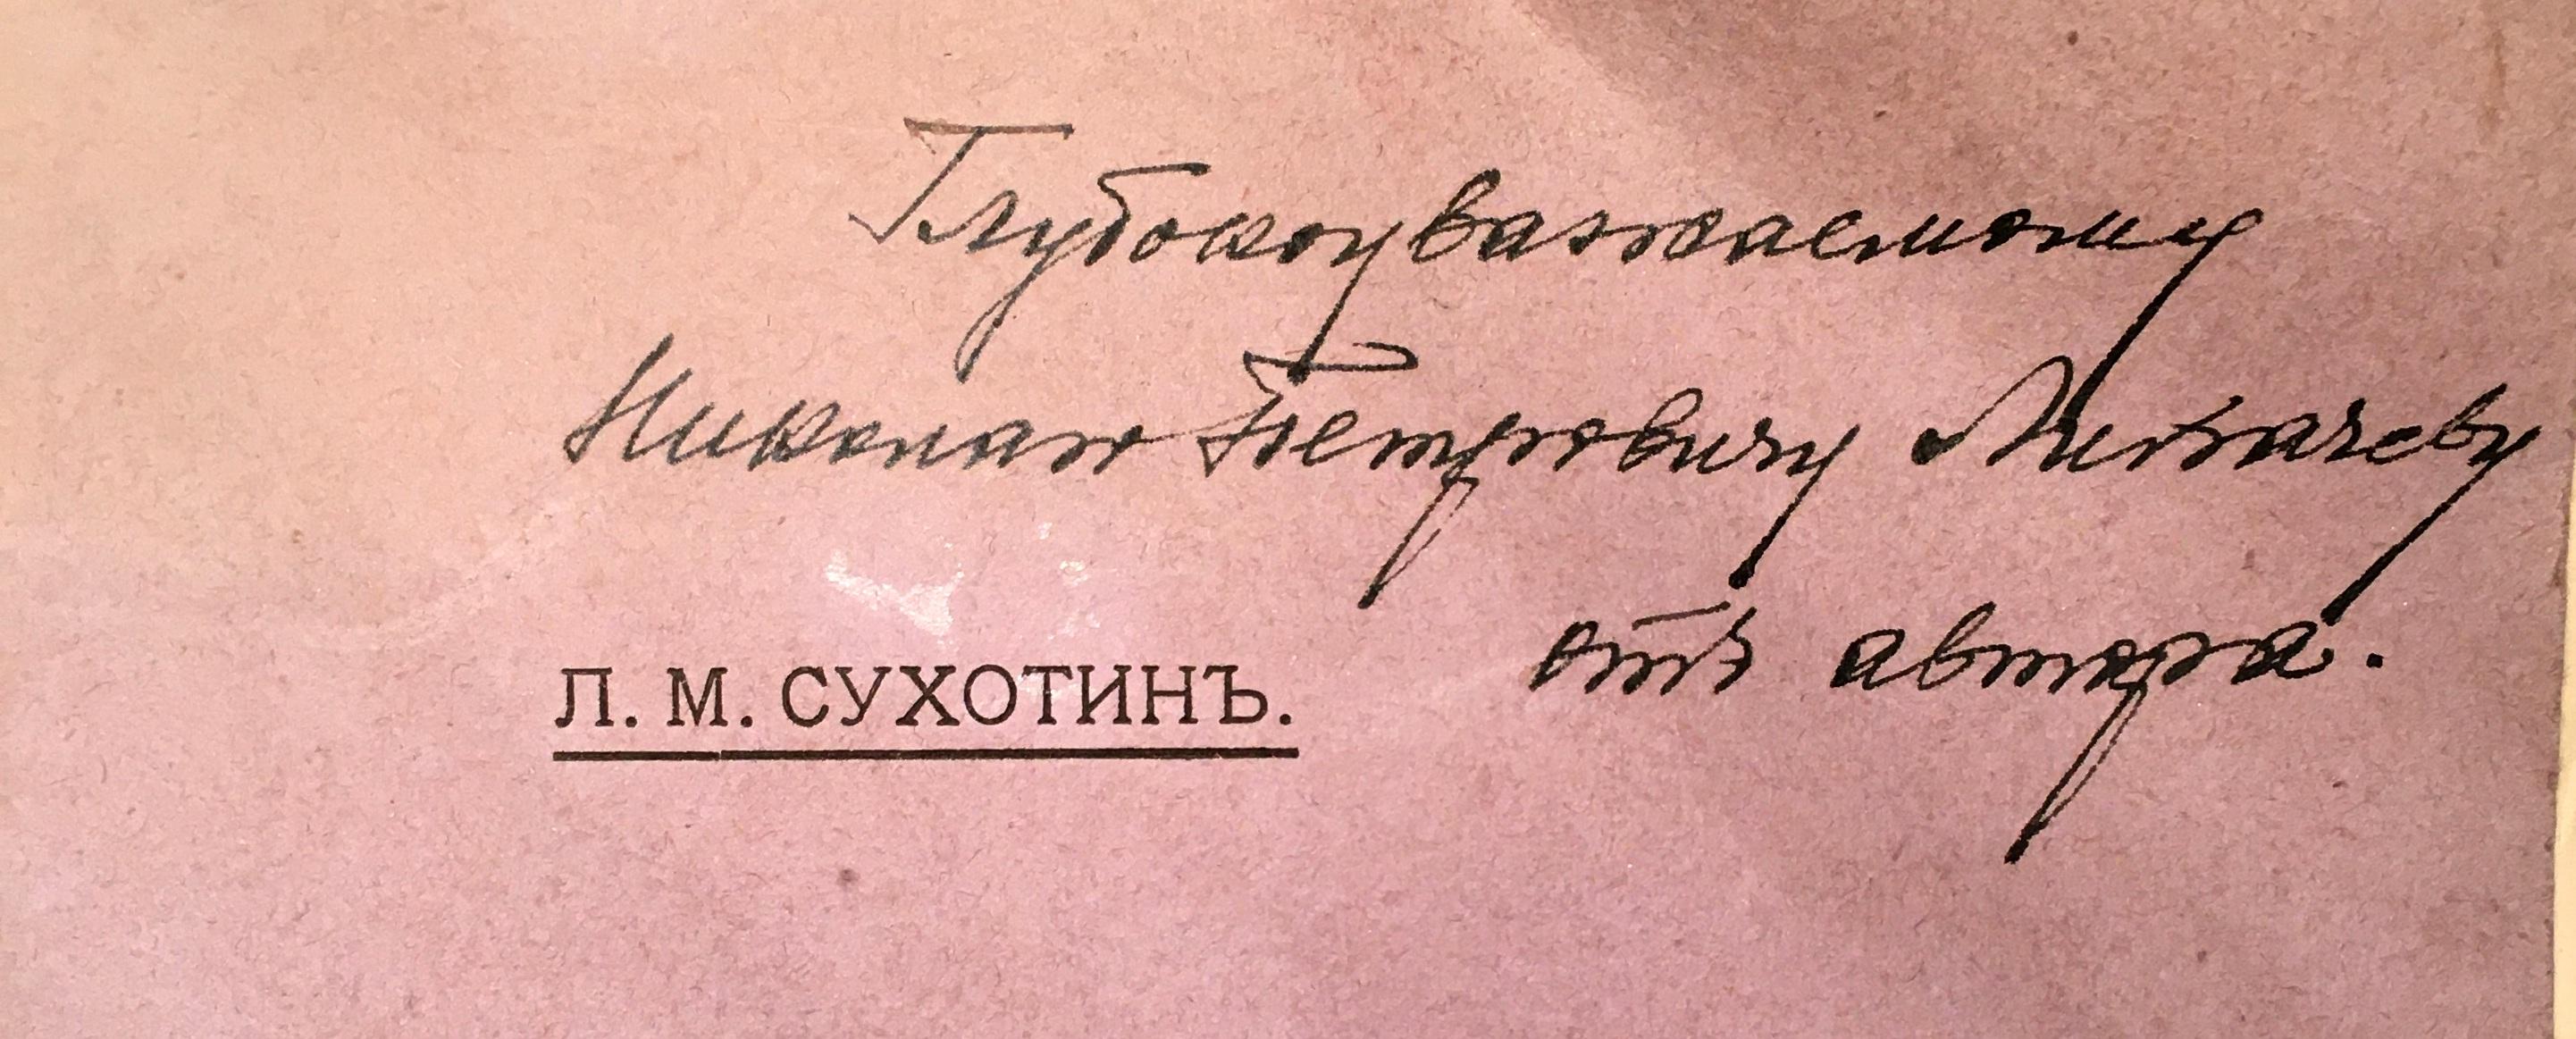 Глубокоуважаемому
Николаю Петровичу Лихачеву
отъ автора.
Л. М. СУХОТИНЪ.